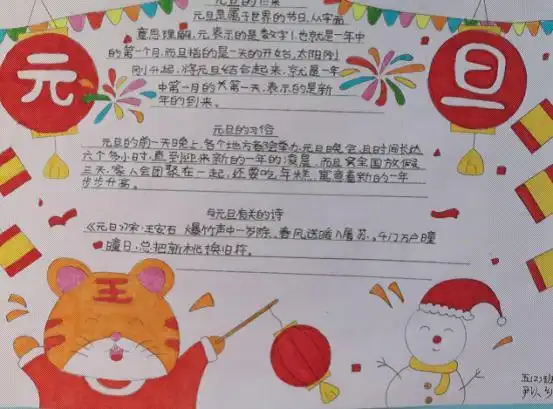 元旦的由来
元
旦
元旦是属于世界的节日，从字面
意思理解，元表示的是数字1，也就是一年中
的第一个月，而旦指的是一天的开始，太阳刚
刚升起，将元旦结合起来，就是一年
中第一月的第一天，表示的是新
年的到来。
元旦的习俗
元旦的前一天晚上，各个地方都会举办元旦晚会，且时间长达
六个多小时，直到迎来新的一年的凌晨，而且
全国放假
三天，家人会团聚在一起，还要吃年糕，寓意着新的一年
步步升高。
与元旦有关的诗
《元日》宋·王安石 爆竹声中一岁除，春风送暖入屠苏。千门万户曈
曈日，总把新桃换旧符。
王
五(2)班